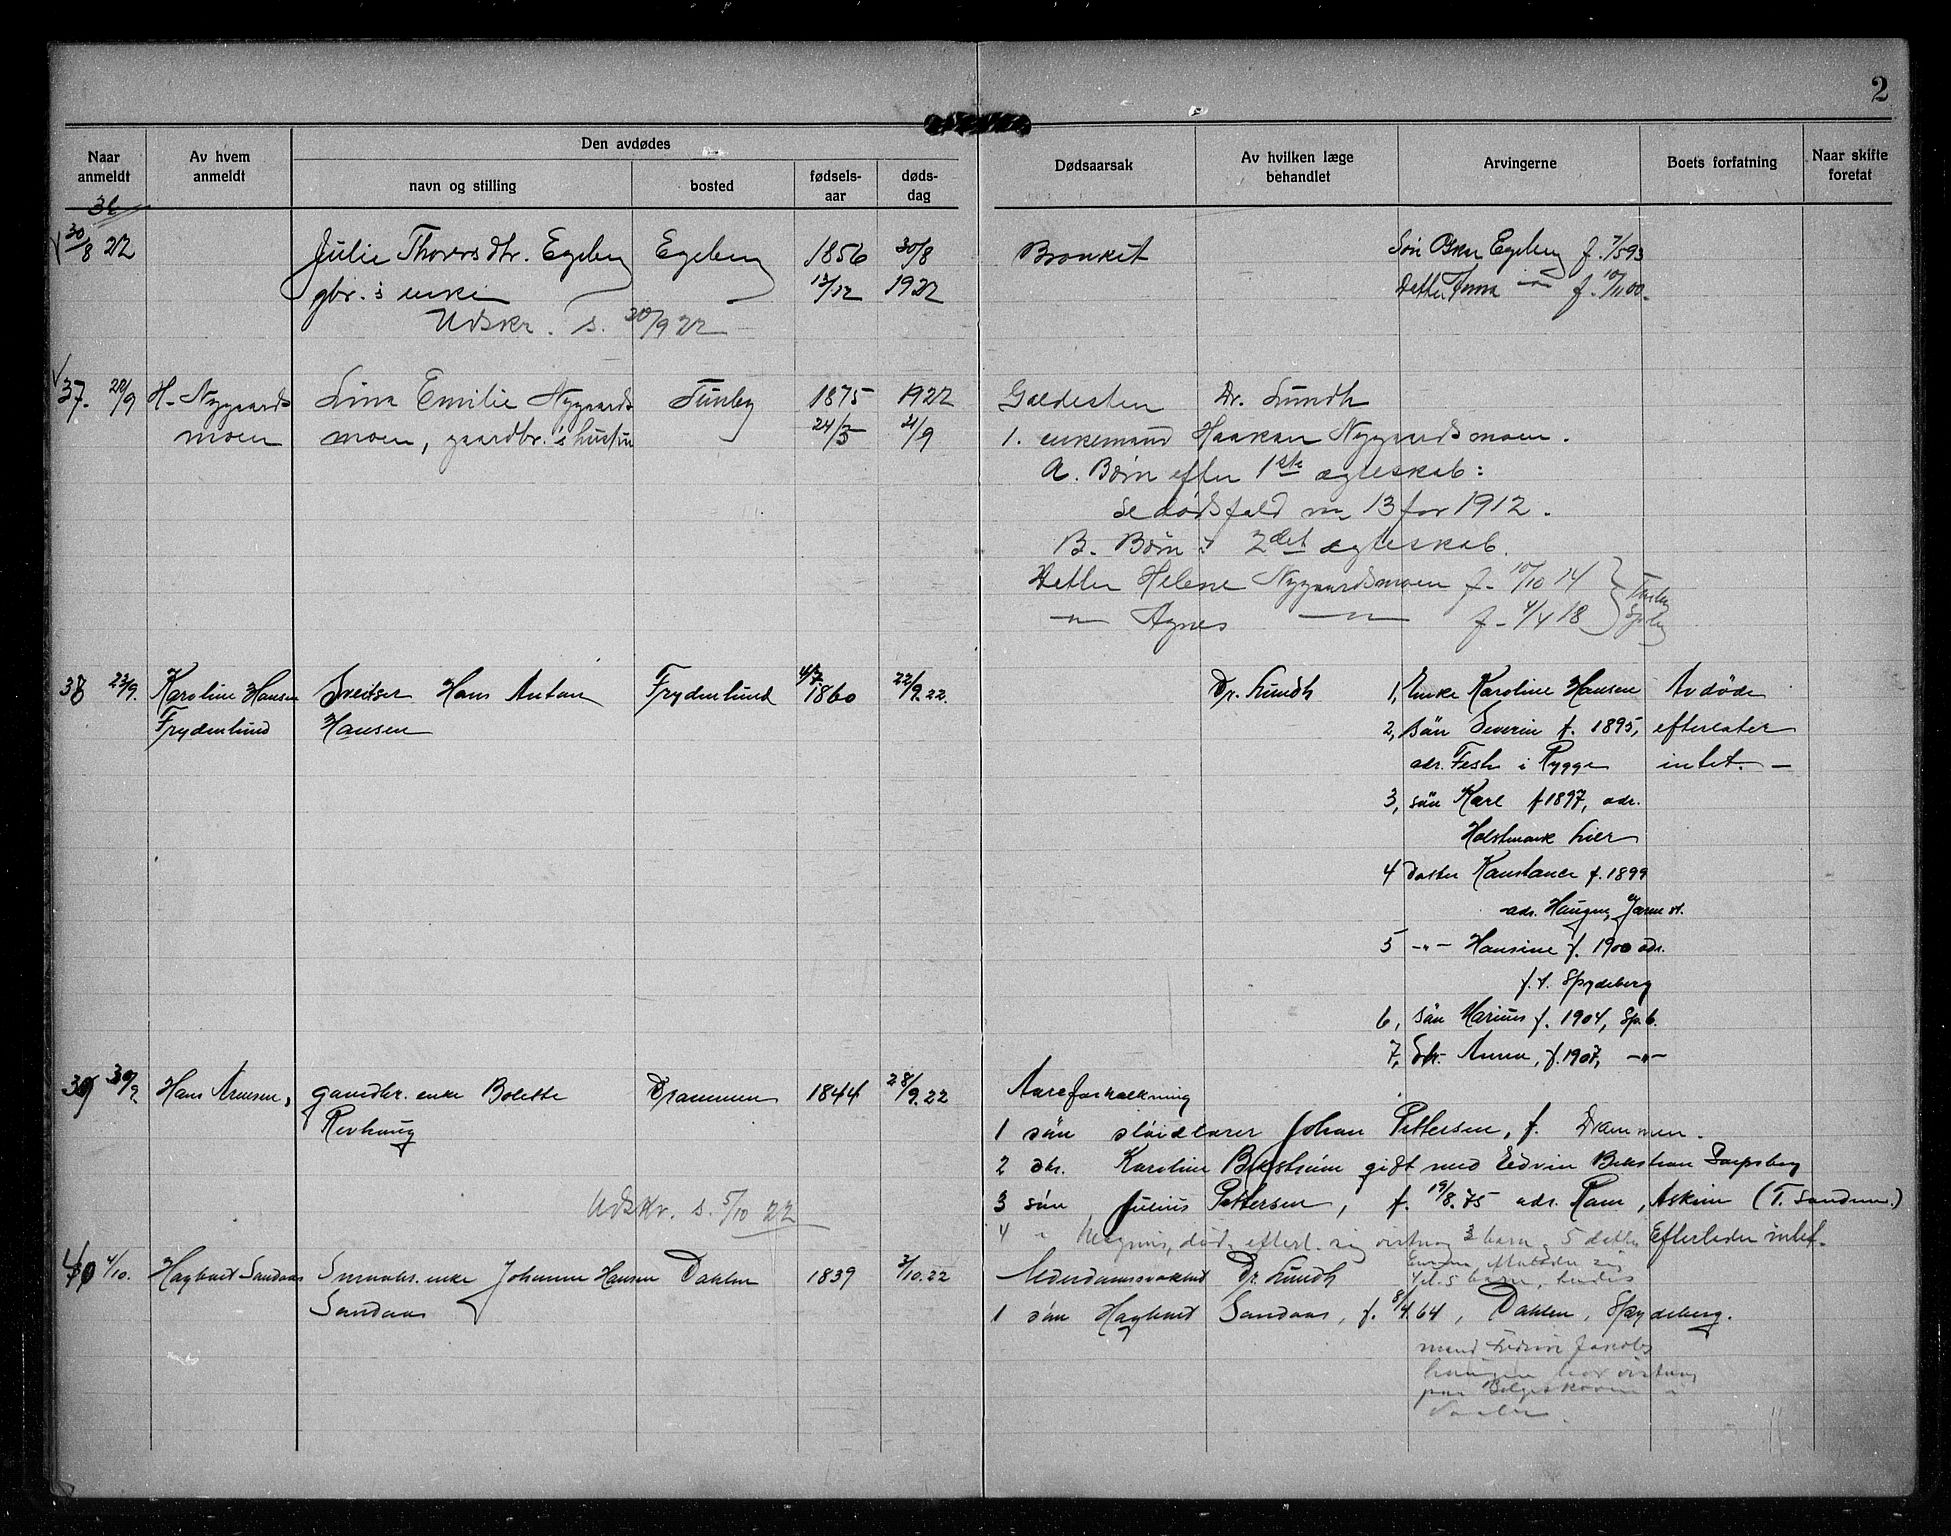 2
Naar anmeldt
Av hvem anmeldt
Den avdødes
navn og stilling
bosted
fødselsaar
dødsdag
Dødsaarsak
Av hvilken læge behandlet
Arvingerne
Boets forfatning
Naar skifte foretat
36
30/8 22 Julie Thorvsdtr. Egeberg Egeberg 1856 30/8 Bronkit Søn Oskar Egeberg f. 7/5 93
gbr.s enke 12/12 1922 Datter Anna -"- f. 10/11 00.
Udskr. s. 30/9 22
37. 28/9 H. Nygaards Lina Emilie Nygaards Tunby 1875 1922 Galdesten Dr. Lundh
moen moen, gaardbr.'s hustru 24/3 21/9 1. enkemand Haakan Nygaardsmoen.
A. Børn efter 1ste ægteskab:
se dødsfald nr 13 for 1912.
B. Børn i 2det ægteskab.
Datter Helene Nygaardsmoen f. 10/10 14
-"- Agnes -"- f. 4/4 18
38 23/9. Karoline Hansen Sveitser Hans Anton Frydenlund 4/7 1860 22/9.22. Dr. Lundh 1, Enke Karoline Hansen Avdøde
Frydenlund Hansen 2, Søn Severin f. 1895, efterlater
adr. Festh i Rygge intet. -
3, søn Karl f 1897, adr.
Holstmark Lier
4 datter Konstance f. 1899
adr. Haugen, Jaren st.
5 -"- Hansine f. 1900 adr.
f.t. Spydeberg
6, søn Marius f. 1904, Spb.
7, dtr. Anna, f. 1907, -"-
39 30/9. Hans Arnesen, gaardbr. enke Bolette Drammen 1844 28/9.22 Aareforkalkning
Revhaug 1 søn sløidlærer Johan Pettersen, f. Drammen.
2 dtr. Karoline Bekstrøm gift med Edvin Bekstrøm Sarpsborg
3 søn Julius Pettersen, f. 19/8.75 adr. Rom, Askim (T. Sandum.)
Udskr. s. 5/10 22
4 " Magnus, død, efterl. sig 3 barn. 5 datter Efterlader intet.
40 4/10. Hagbart Sandaas Smaabr. enke Johanne Hansen Dahlen 1839 3/10.22 Alderdomssvakhed Dr. Lundh
Sandaas 1 søn Hagbart Sandaas, f. 8/4.64, Dahlen, Spydeberg.